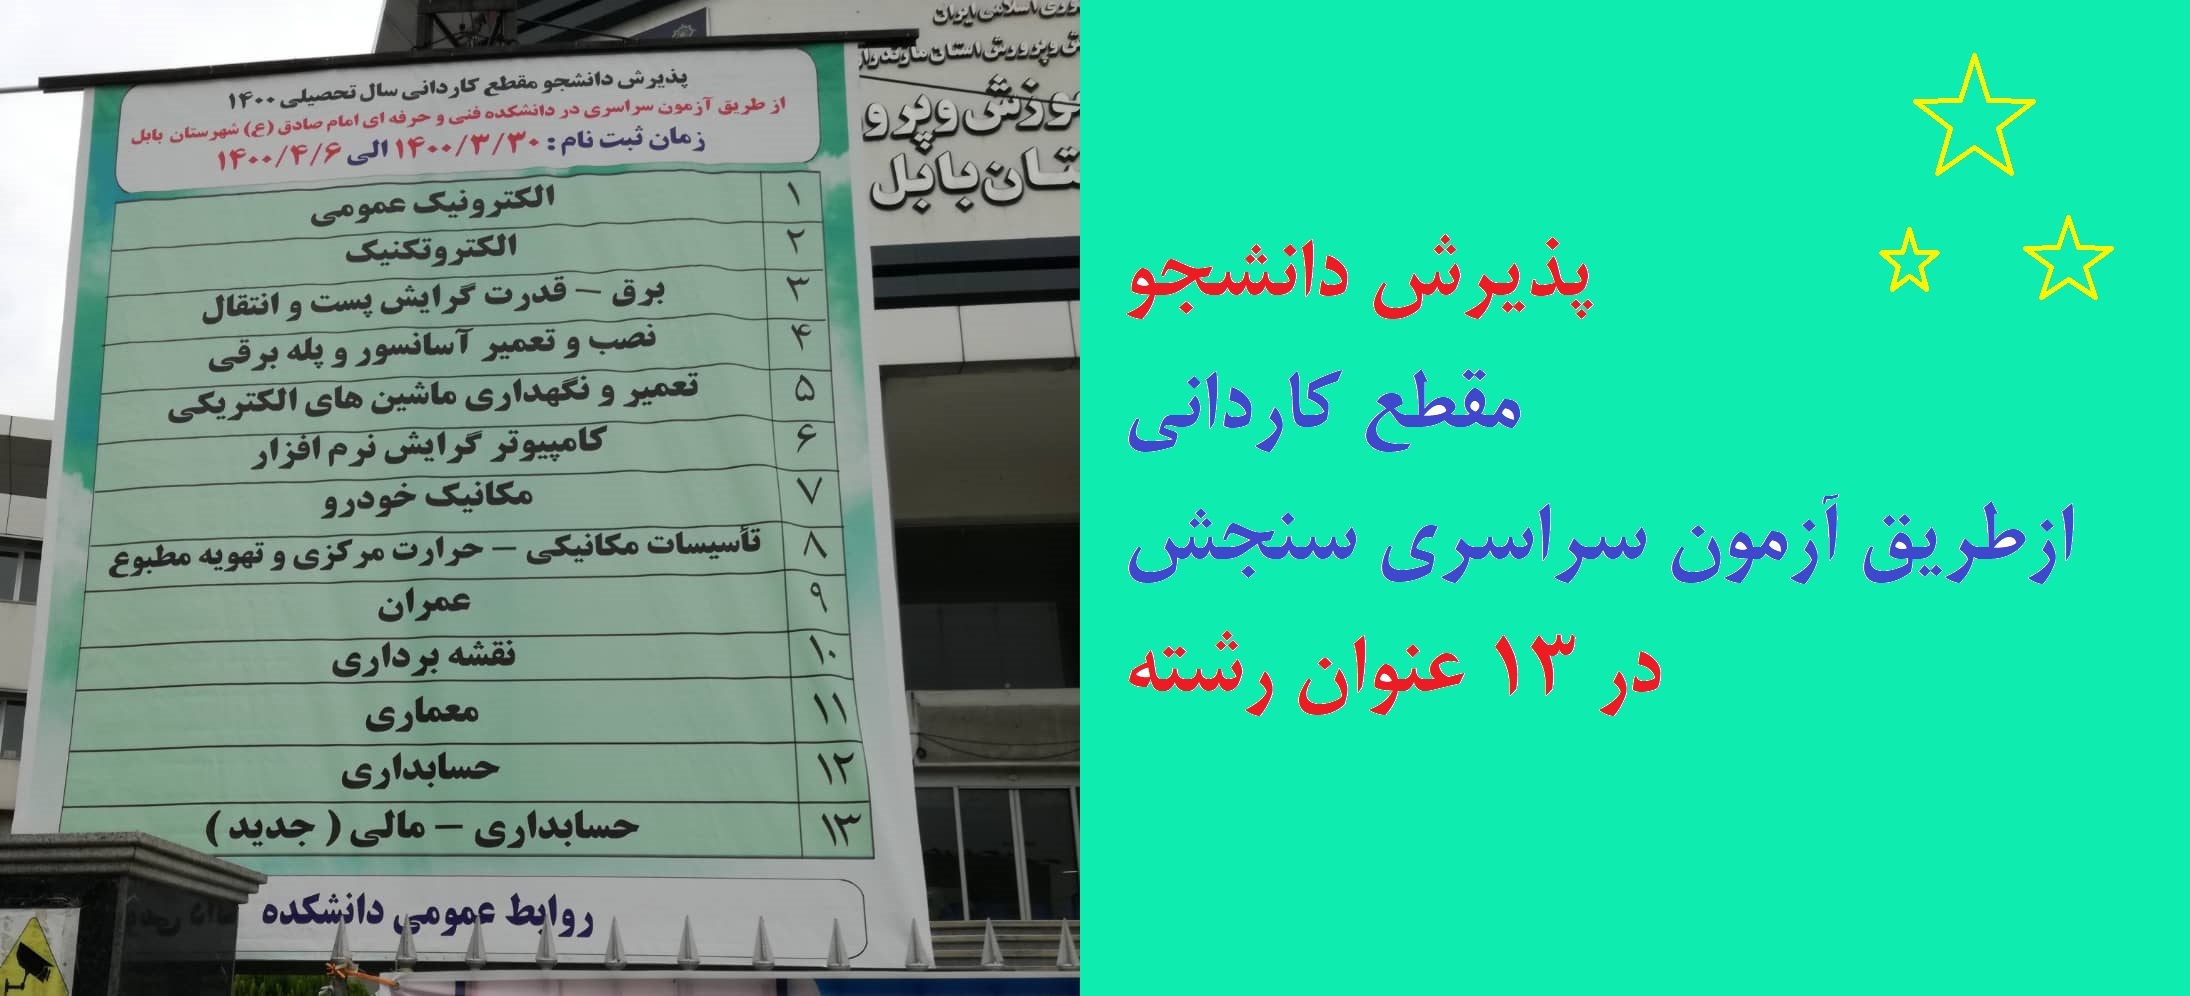 پذیرش دانشجو مقطع کاردانی سال تحصیلی ۱۴۰۰
از طریق آزمون سراسری در دانشکده فنی و حرفه ای امام صادق (ع) شهرستان بابل
زمان ثبت نام : ۱۴۰۰/۳/۳۰ الی ۱۴۰۰/۴/۶
۱ الکترونیک عمومی
۲ الکتروتکنیک
۳ برق – قدرت گرایش پست و انتقال
۴ نصب و تعمیر آسانسور و پله برقی
۵ تعمیر و نگهداری ماشین های الکتریکی
۶ کامپیوتر گرایش نرم افزار
۷ مکانیک خودرو
۸ تأسیسات مکانیکی – حرارت مرکزی و تهویه مطبوع
۹ عمران
۱۰ نقشه برداری
۱۱ معماری
۱۲ حسابداری
۱۳ حسابداری – مالی ( جدید )
روابط عمومی دانشکده
اسلامی ایران
استان
بابل
پذیرش دانشجو
مقطع کاردانی
ازطریق آزمون سراسری سنجش
در ۱۳ عنوان رشته